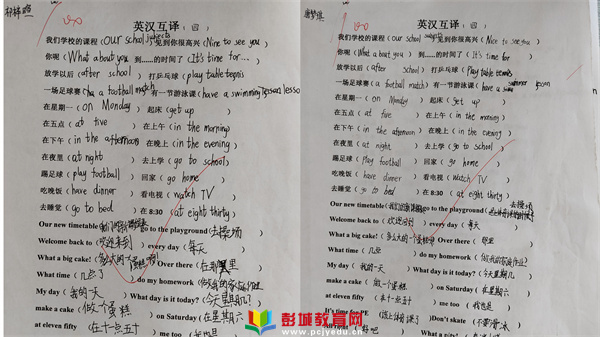 英汉互译（四）
我们学校的课程（our school subjects）见到你很高兴（Nice to see you）
你呢（What about you）到……的时间了（It's time for...）
放学以后（after school）打乒乓球（play table tennis）
一场足球赛（a football match）有一节游泳课（have a swimming lesson）
在星期一（on Monday）起床（get up）
在五点（at five）在上午（in the morning）
在下午（in the afternoon）在晚上（in the evening）
在夜里（at night）去上学（go to school）
踢足球（play football）回家（go home）
吃晚饭（have dinner）看电视（watch TV）
去睡觉（go to bed）在 8:30（at eight thirty）
Our new timetable（我们的新）go to the playground（去操场）
Welcome back to（欢迎来到）every day（每天）
What a big cake!（多么大的）Over there（在那里）
What time（几点了）do my homework（做我的家庭作业）
My day（我的一天）What day is it today?（今天星期几）
make a cake（做个蛋糕）on Saturday（在星期六）
at eleven fifty（在十一点五十）me too（我也是）
英汉互译（四）
我们学校的课程（our school subjects）见到你很高兴（Nice to see you）
你呢（What about you）到……的时间了（It's time for）
放学以后（after school）打乒乓球（play table tennis）
一场足球赛（a football match）有一节游泳课（have a swimming lesson）
在星期一（on Monday）起床（get up）
在五点（at five）在上午（in the morning）
在下午（in the afternoon）在晚上（in the evening）
在夜里（at night）去上学（go to school）
踢足球（play football）回家（go home）
吃晚饭（have dinner）看电视（watch TV）
去睡觉（go to bed）在 8:30（at eight thirty）
Our new timetable go to the playground（去操场）
Welcome back to（欢迎回到）every day（每天）
What a big cake!（多么大的一个蛋糕）Over there（那里）
What time（几点）do my homework（做我的家庭作业）
My day（我的一天）What day is it today?（今天星期几）
make a cake（做一个蛋糕）on Saturday（在星期六）
at eleven fifty（在十一点五十）me too（我也是）
It's time for PE Don't skate（不要滑冰）
彭城教育网
www.pcjyedu.com